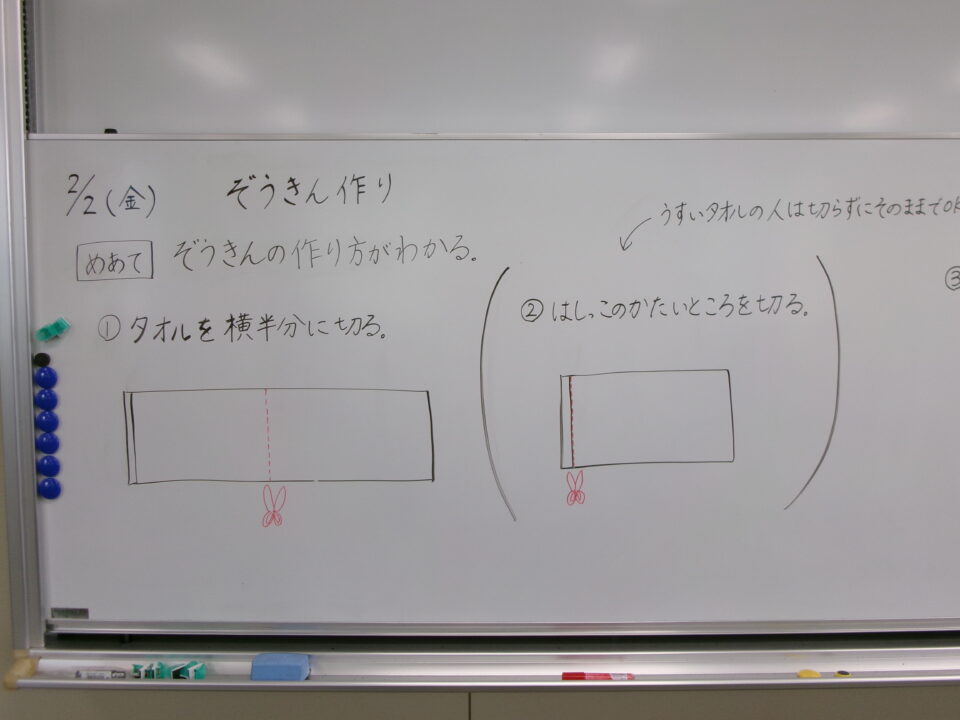 2/2(金) ぞうきん作り
めあて ぞうきんの作り方がわかる。
うすいタオルの人は切らずにそのままでOK
① タオルを横半分に切る。
② はしっこのかたいところを切る。
③